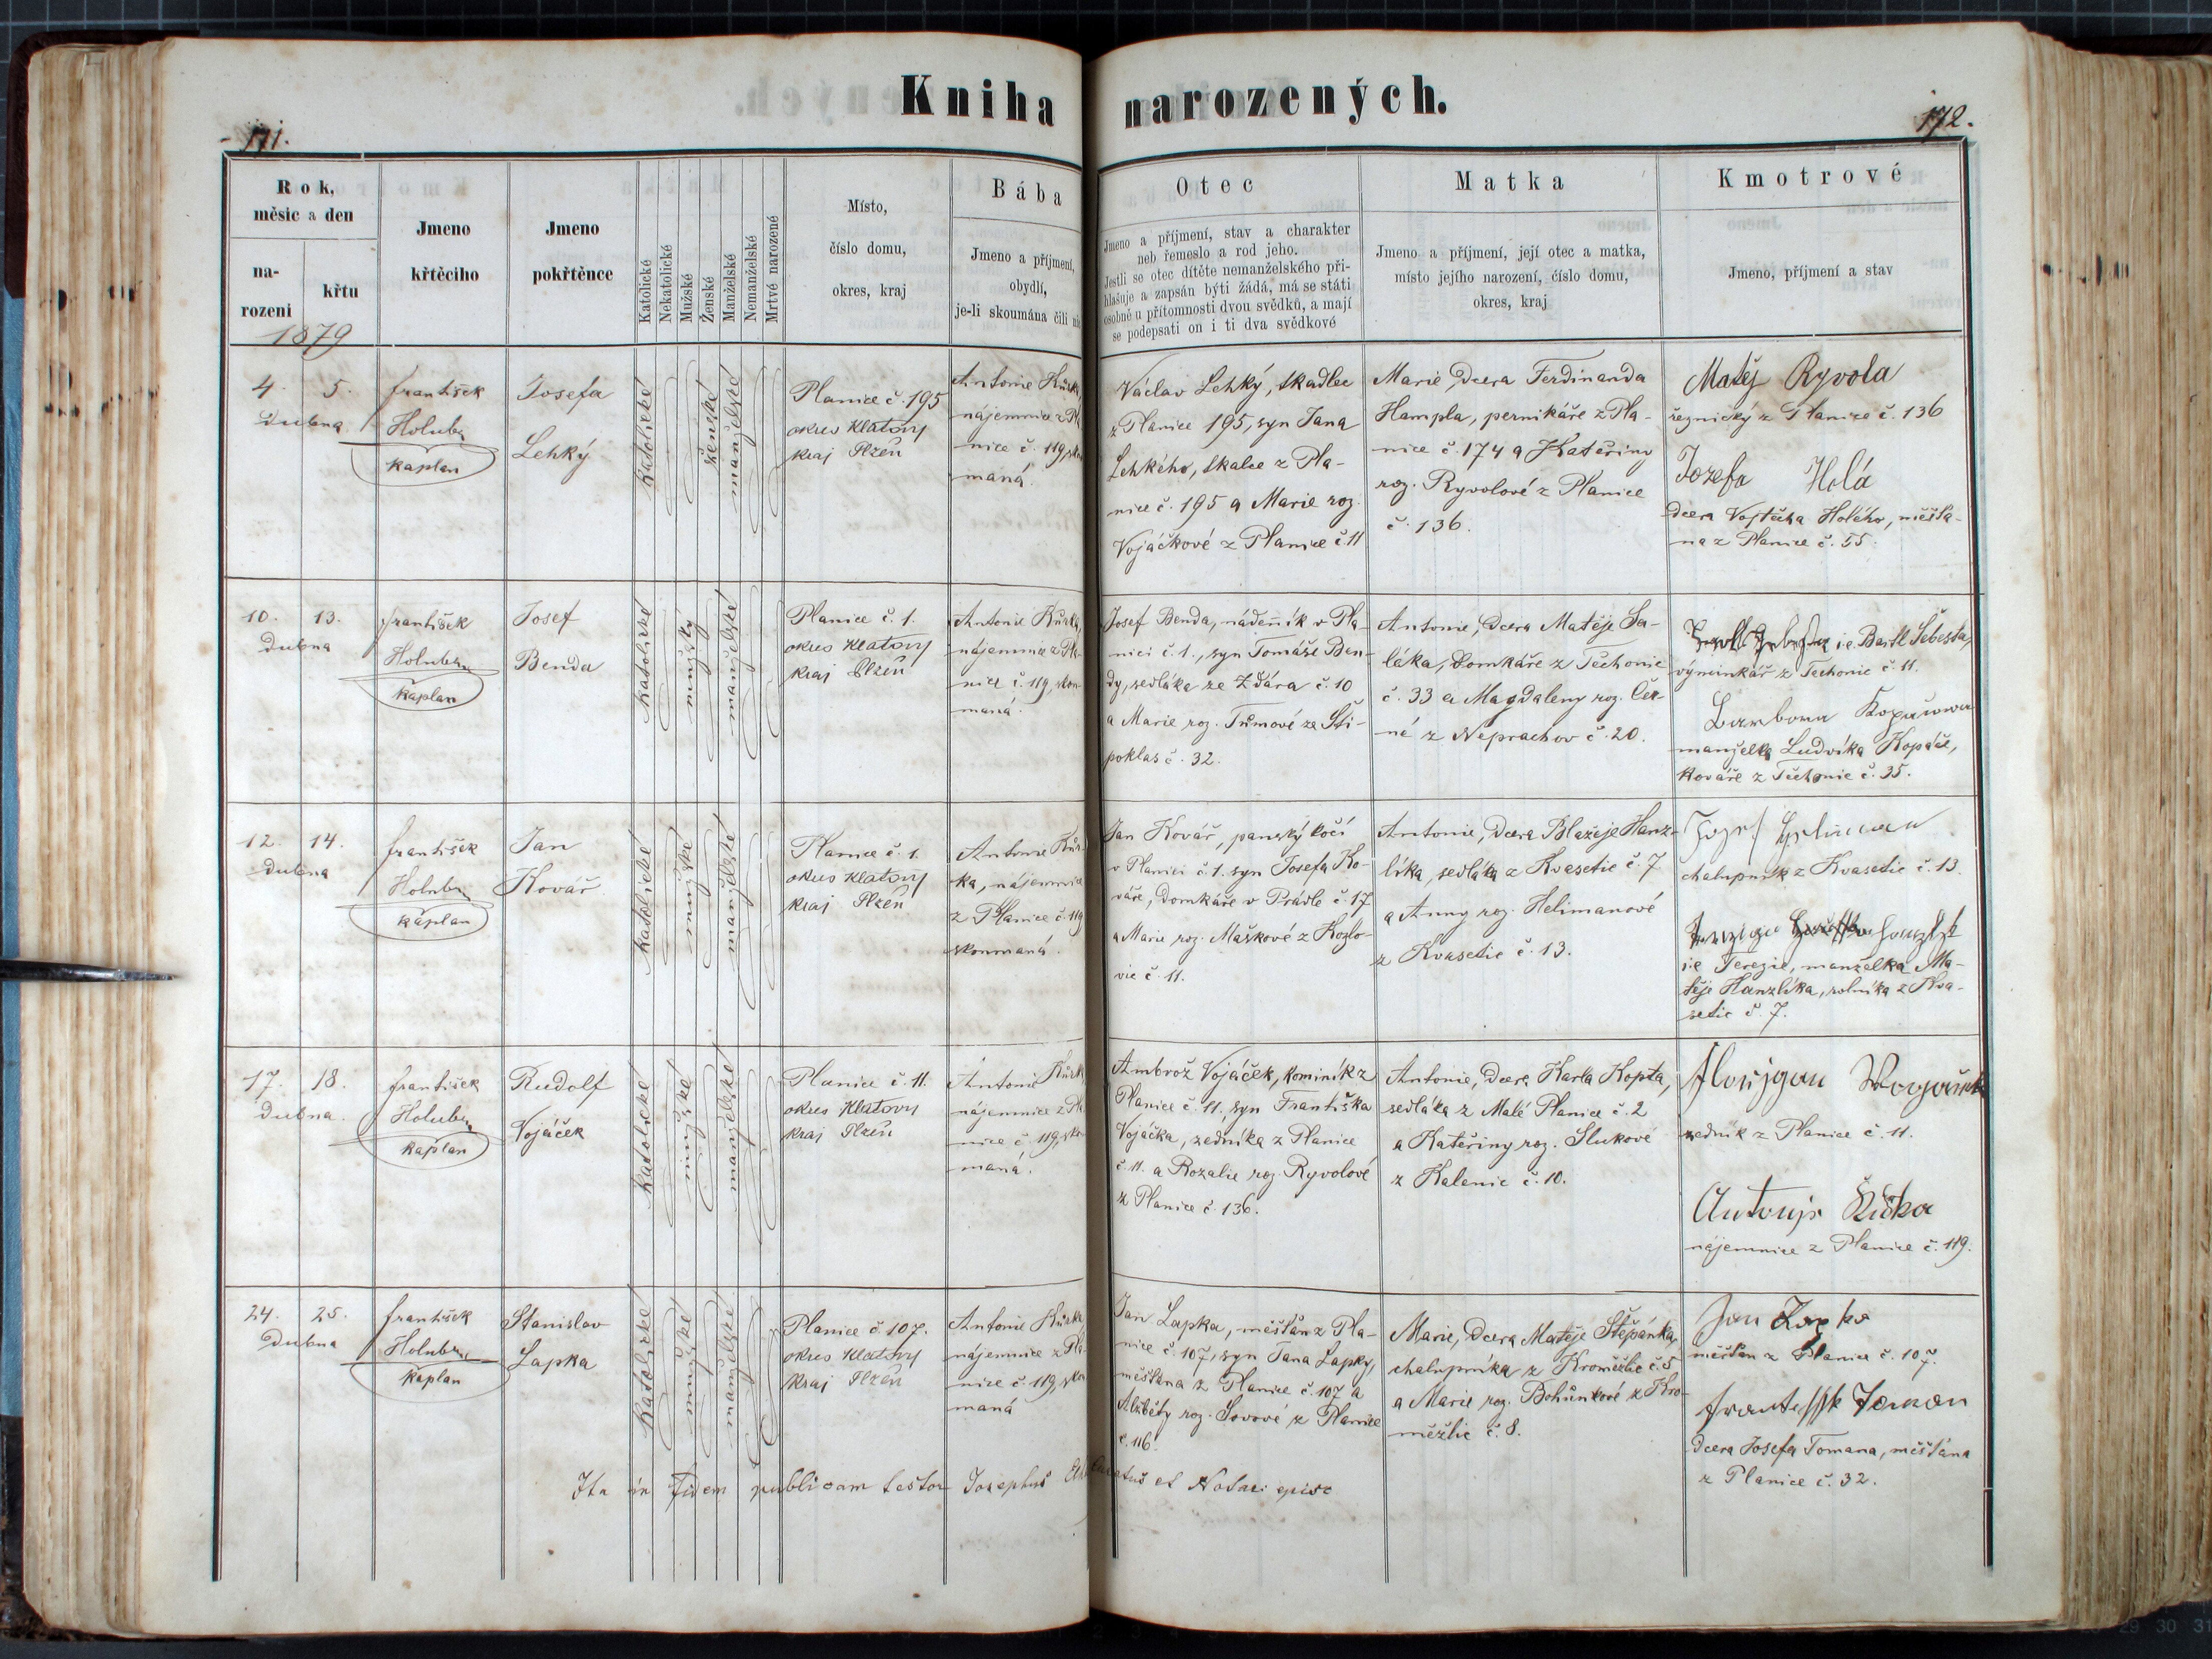 Kniha narozených.
171.
172.
Rok,
měsíc a den
na-
rozeni
křtu
1879
Jmeno
křtěcího
Jmeno
pokřtěnce
Katolické
Nekatolické
Mužské
Ženské
Manželské
Nemanželské
Mrtvé narozené
Místo,
číslo domu,
okres, kraj
Bába
Jmeno a příjmení,
obydlí,
je-li skoumána čili
Otec
Jmeno a příjmení, stav a charakter
neb řemeslo a rod jeho.
Jestli se otec dítěte nemanželského při-
hlašuje a zapsán býti žádá, má se státi
osobně u přítomnosti dvou svědků, a mají
se podepsati on i ti dva svědkové
Matka
Jmeno a příjmení, její otec a matka,
místo jejího narození, číslo domu,
okres, kraj
Kmotrové
Jmeno, příjmení a stav
4. 5.
Dubna
František
Holub
kaplan
Josefa
Lehký
katolické
ženské
manželské
Planice č. 195
okres Klatovy
kraj Plzeň
Antonie Kůrka,
nájemnice z Pla
nice č. 119, sko
maná.
Václav Lehký, tkadlec
z Planice 195, syn Jana
Lehkého, tkalce z Pla-
nice č. 195 a Marie roz.
Vojáčkové z Planice č. 11
Marie, dcera Ferdinanda
Hampla, pernikáře z Pla-
nice č. 174 a Kateřiny
roz. Ryvolové z Planice
č. 136.
Matěj Ryvola
řeznický z Planice č. 136
Jozefa Holá
dcera Vojtěcha Holého, měšťa-
na z Planice č. 55.
10. 13.
Dubna
František
Holub
kaplan
Josef
Benda
katolické
mužský
manželské
Planice č. 1.
okres Klatovy
kraj Plzeň
Antonie Kůrka,
nájemnice z Pla-
nice č. 119, skou
maná.
Josef Benda, nádenník v Pla-
nici č. 1., syn Tomáše Ben-
dy, sedláka ze Žďára č. 10
a Marie roz. Tůmové ze Ští-
poklas č. 32.
Antonie, dcera Matěje Sa-
láka, domkáře z Těchonic
č. 33 a Magdaleny roz. Čer-
né z Neprachov č. 20.
i.e. Bartl Šebesta,
výminkář z Těchonic č. 11.
Barbora
manželka Ludvíka Kopáče,
kováře z Těchonic č. 35.
12. 14.
Dubna
František
Holub
kaplan
Jan
Kovář
katolické
mužské
manželské
Planice č. 1.
okres Klatovy
kraj Plzeň
Antonie Kůr-
ka, nájemnice
z Planice č. 119
skoumaná.
Jan Kovář, panský kočí
v Planici č. 1. syn Josefa Ko-
váře, domkáře v Prádle č. 17
a Marie roz. Maškové z Kozlo-
vic č. 11.
Antonie, dcera Blažeje Hanz-
líka, sedláka z Kvasetic č. 7
a Anny roz. Helimanové
z Kvasetic č. 13.
chalupník z Kvasetic č. 13.
i.e Terezie, manželka Ma-
těje Hanzlíka, rolníka z Kva-
setic č. 7.
17. 18.
Dubna.
František
Holub
kaplan
Rudolf
Vojáček
katolické
mužské
manželské
Planice č. 11.
okres Klatovy
kraj Plzeň
Antonie Kůrka
nájemnice z Pla
nice č. 119, sko
maná.
Ambrož Vojáček, kominík z
Planice č. 11, syn Františka
Vojáčka, zedníka z Planice
č. 11. a Rozalie roz. Ryvolové
z Planice č. 136.
Antonie, dcera Karla Kopta,
sedláka z Malé Planice č. 2
a Kateřiny roz. Slukové
z Kalenic č. 10.
Florijgan
zedník z Planice č. 11.
Antonje
nájemnice z Planice č. 119.
24. 25.
Dubna
František
Holub
kaplan
Stanislav
Lapka
katolické
mužské
manželské
Planice č. 107.
okres Klatovy
kraj Plzeň
Antonie Kůrka
nájemnice z Pla
nice č. 119, skou
maná
Jan Lapka, měšťan z Pla-
nice č. 107, syn Jana Lapky,
měšťana z Planice č. 107 a
Alžběty roz. Sovové z Planice
č. 116.
Marie, dcera Matěje Štěpánka,
chalupníka z Kroměžlic č. 5
a Marie roz. Bohůnkové z Kro-
měžlic č. 8.
Jan Lapka
měšťan z Planice č. 107.
dcera Josefa Tomana, měšťana
z Planice č. 32.
Ita in fidem publicam testor Josephus et